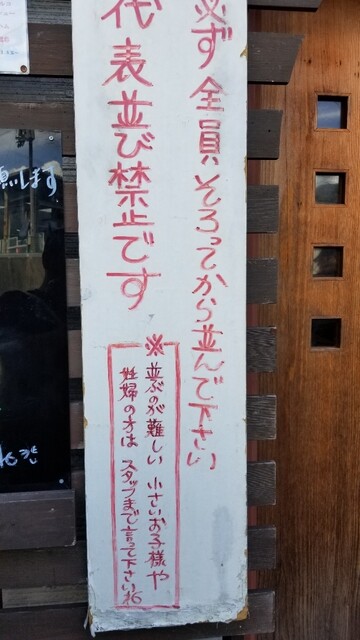 必ず全員そろってから並んで下さい
代表並び禁止です
※並ぶのが難しい小さいお子様や
妊婦の方はスタッフまで言って下さいね